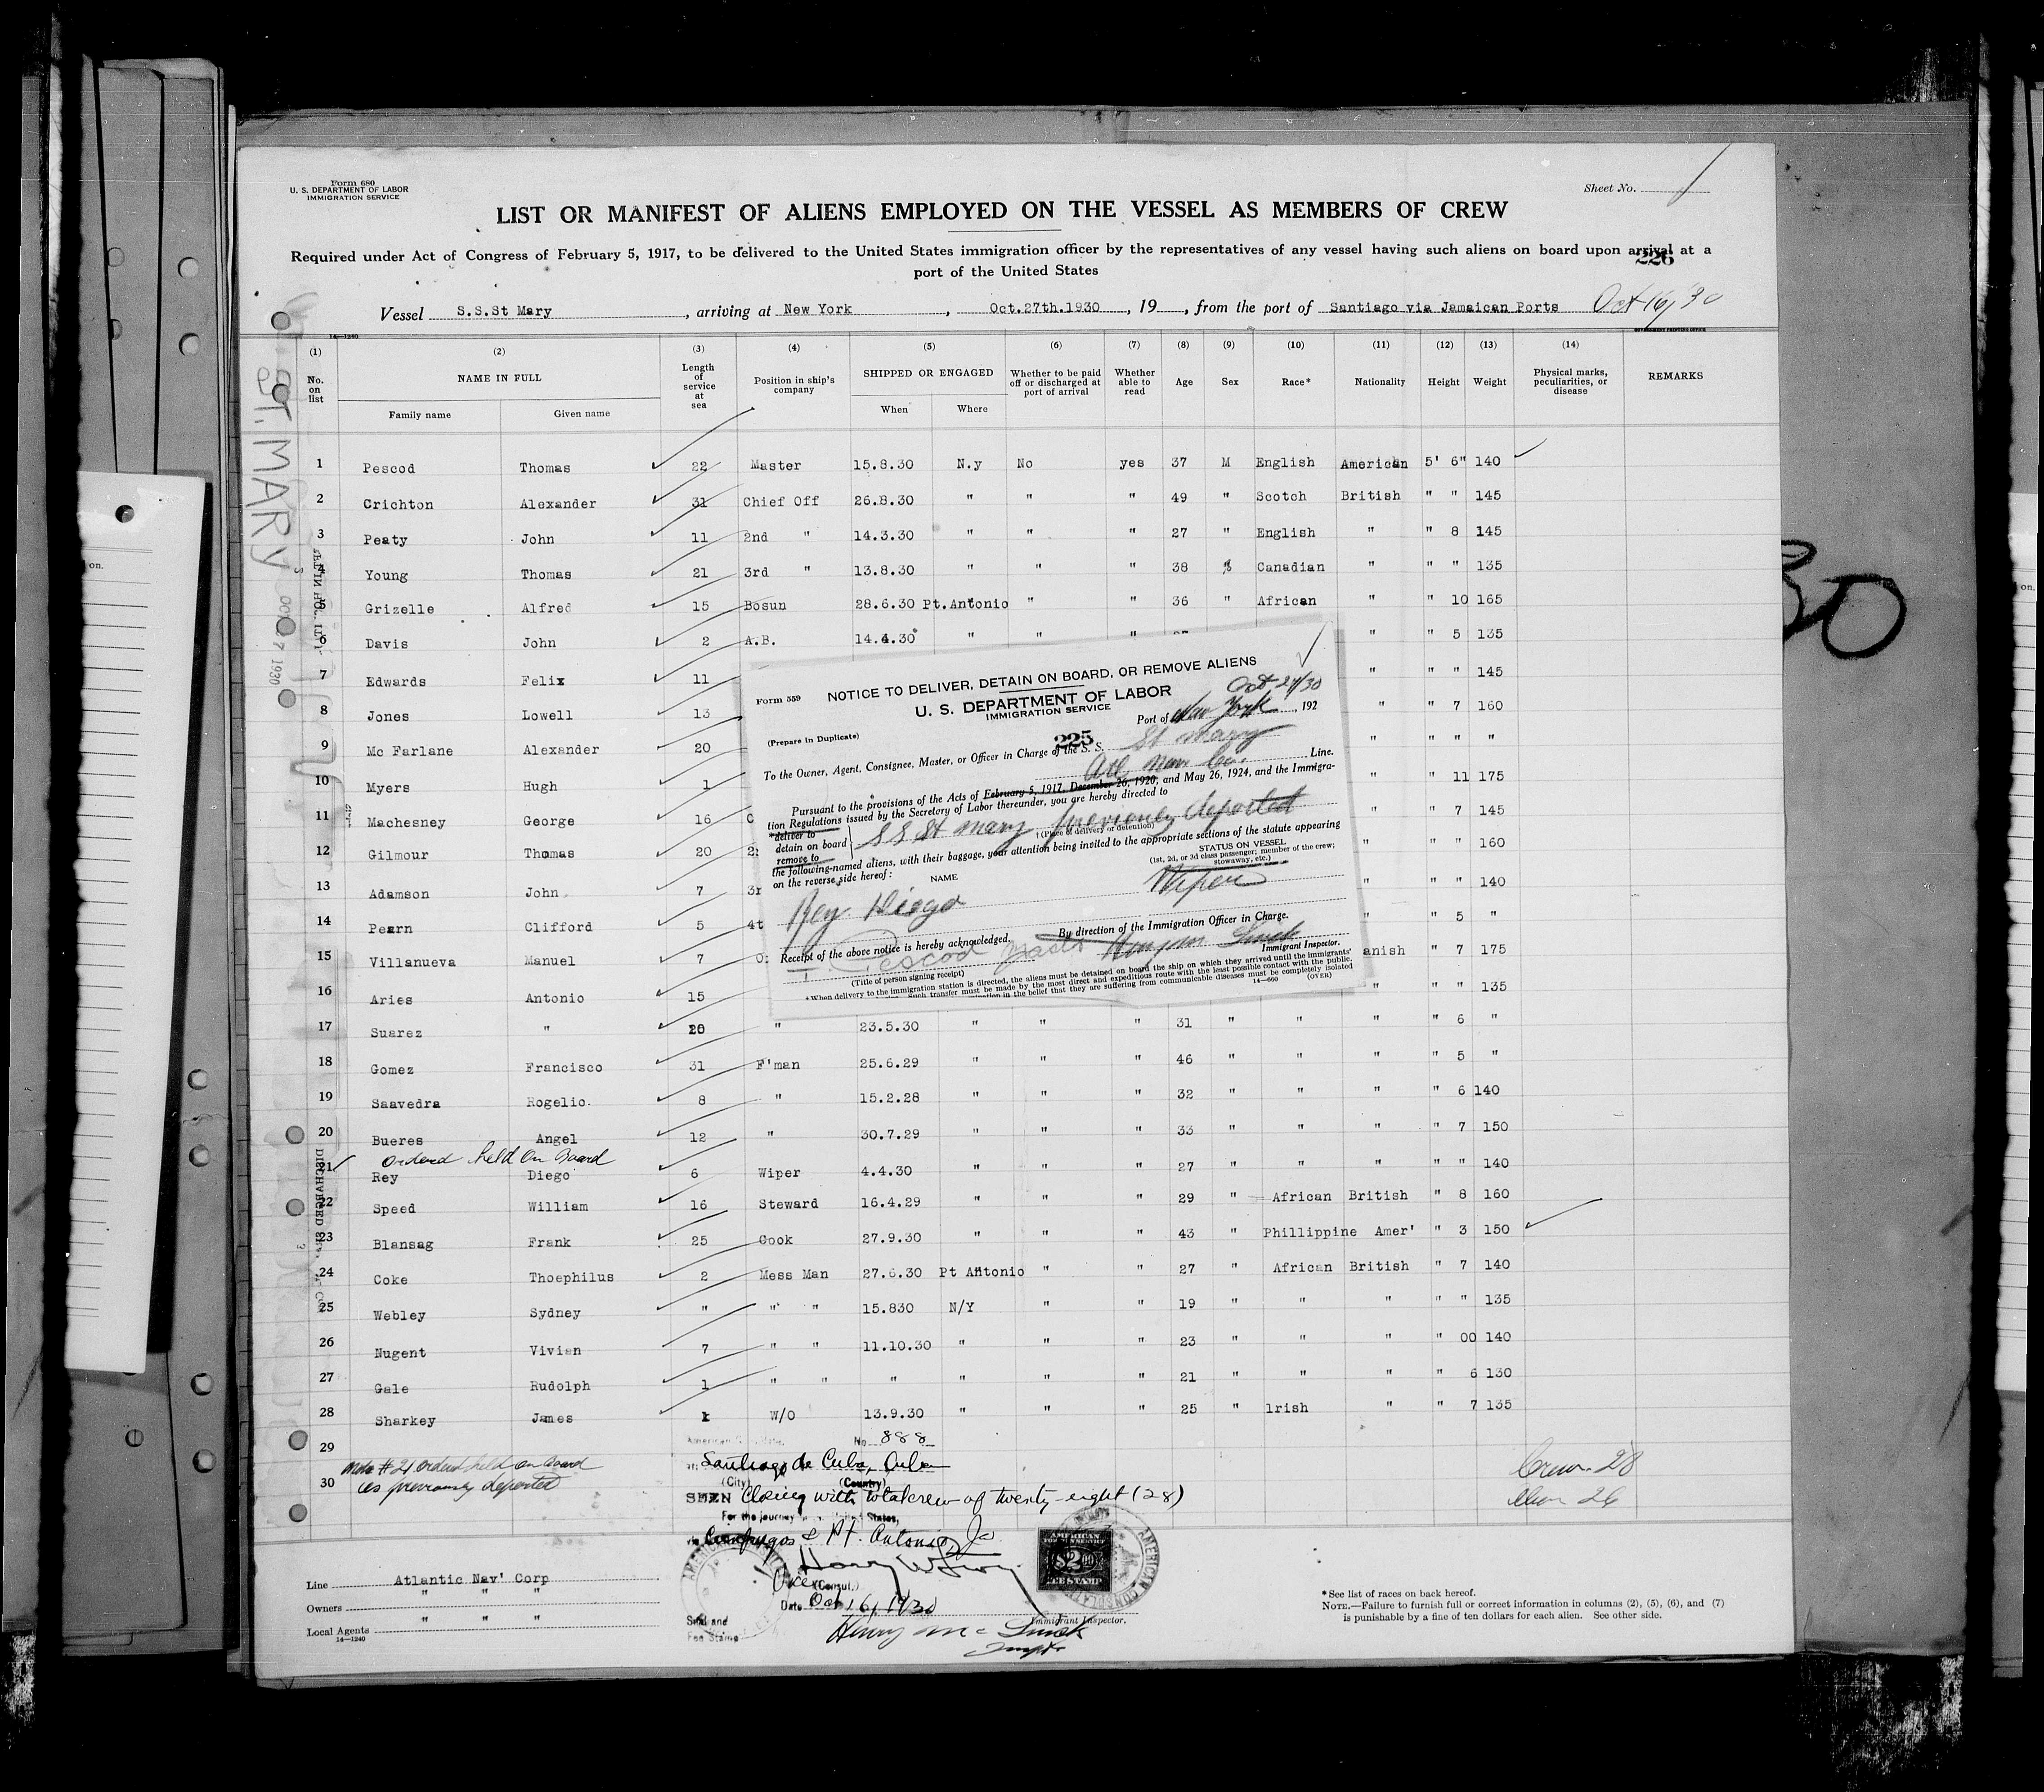 Form 680
U. S. DEPARTMENT OF LABOR
IMMIGRATION SERVICE
Sheet No. 1
LIST OR MANIFEST OF ALIENS EMPLOYED ON THE VESSEL AS MEMBERS OF CREW
Required under Act of Congress of February 5, 1917, to be delivered to the United States immigration officer by the representatives of any vessel having such aliens on board upon arrival at a
port of the United States
226
Vessel S.S.St Mary, arriving at New York, Oct.27th.1930, 19, from the port of Santiago via Jamaican Ports Oct 16/30
14—1240
(1) (2) (3) (4) (5) (6) (7) (8) (9) (10) (11) (12) (13) (14)
No. on list NAME IN FULL Family name Given name Length of service at sea Position in ship's company SHIPPED OR ENGAGED When Where Whether to be paid off or discharged at port of arrival Whether able to read Age Sex Race* Nationality Height Weight Physical marks, peculiarities, or disease REMARKS
ST. MARY
OCT 27 1930
1 Pescod Thomas 22 Master 15.8.30 N.y No yes 37 M English American 5' 6" 140
2 Crichton Alexander 31 Chief Off 26.8.30 " " " 49 " Scotch British " " 145
3 Peaty John 11 2nd " 14.3.30 " " " 27 " English " " 8 145
4 Young Thomas 21 3rd " 13.8.30 " " " 38 Canadian " " " 135
5 Grizelle Alfred 15 Bosun 28.6.30 Pt.Antonio " " 36 " African " " 10 165
6 Davis John 2 A.B. 14.4.30 " " " " " 5 135
7 Edwards Felix 11 " " " 145
8 Jones Lowell 13 " " 7 160
9 Mc Farlane Alexander 20 " " " "
10 Myers Hugh 1 " " 11 175
11 Machesney George 16 " " 7 145
12 Gilmour Thomas 20 " " " 160
13 Adamson John 7 " " " 140
14 Pearn Clifford 5 4t " " 5 "
15 Villanueva Manuel 7 anish " 7 175
16 Aries Antonio 15 " " " 135
17 Suarez " 20 " 23.5.30 " " " 31 " " " " 6 "
18 Gomez Francisco 31 F'man 25.6.29 " " " 46 " " " " 5 "
19 Saavedra Rogelio 8 " 15.2.28 " " " 32 " " " " 6 140
20 Bueres Angel 12 " 30.7.29 " " " 33 " " " " 7 150
ordered held on Board
21 Rey Diego 6 Wiper 4.4.30 " " " 27 " " " " " 140
22 Speed William 16 Steward 16.4.29 " " " 29 " African British " 8 160
23 Blansag Frank 25 Cook 27.9.30 " " " 43 " Phillippine Amer' " 3 150
24 Coke Thoephilus 2 Mess Man 27.6.30 Pt Antonio " " 27 " African British " 7 140
25 Webley Sydney " " " 15.830 N/Y " " 19 " " " " " 135
26 Nugent Vivian 7 " " 11.10.30 " " " 23 " " " " 00 140
27 Gale Rudolph 1 " " " " " " 21 " " " " 6 130
28 Sharkey James 1 W/O 13.9.30 " " " 25 " lrish " " 7 135
29
30
Form 559
NOTICE TO DELIVER, DETAIN ON BOARD, OR REMOVE ALIENS
U. S. DEPARTMENT OF LABOR
IMMIGRATION SERVICE
Oct 27/30
Port of New York, 192
(Prepare in Duplicate)
225
To the Owner, Agent, Consignee, Master, or Officer in Charge of the S. S. St Mary
Atl Nav Co. Line.
Pursuant to the provisions of the Acts of February 5, 1917, December 26, 1920, and May 26, 1924, and the Immigra-
tion Regulations issued by the Secretary of Labor thereunder, you are hereby directed to
*deliver to
detain on board
remove to
SS St Mary previously deported
† (Place of delivery or detention)
the following-named aliens, with their baggage, your attention being invited to the appropriate sections of the statute appearing
on the reverse side hereof:
NAME
STATUS ON VESSEL
(1st, 2d, or 3d class passenger; member of the crew; stowaway, etc.)
Rey Diego Wiper
By direction of the Immigration Officer in Charge.
Receipt of the above notice is hereby acknowledged.
T. Pescod
Immigrant Inspector.
(Title of person signing receipt)
* When delivery to the immigration station is directed, the aliens must be detained on board the ship on which they arrived until the immigrants'
Such transfer must be made by the most direct and expeditious route with the least possible contact with the public.
in the belief that they are suffering from communicable diseases must be completely isolated
14—660 (OVER)
Note #21 ordered held on board
as previously deported
No 888
Santiago de Cuba, Cuba
(City) (Country)
SEEN Closing with total crew of twenty-eight (28)
For the journey United States,
Cienfuegos & Pt. Antonio Ja
Vice (Consul.)
Date Oct 16, 1930
Seal and
Fee Stamp
Crew 28
Alien 26
AMERICAN
$2.00
AMERICAN CONSULATE
Line Atlantic Nav' Corp
Owners " " "
Local Agents " " "
14—1240
Henry Mc
Immigrant Inspector.
*See list of races on back hereof.
NOTE.—Failure to furnish full or correct information in columns (2), (5), (6), and (7)
is punishable by a fine of ten dollars for each alien. See other side.
30